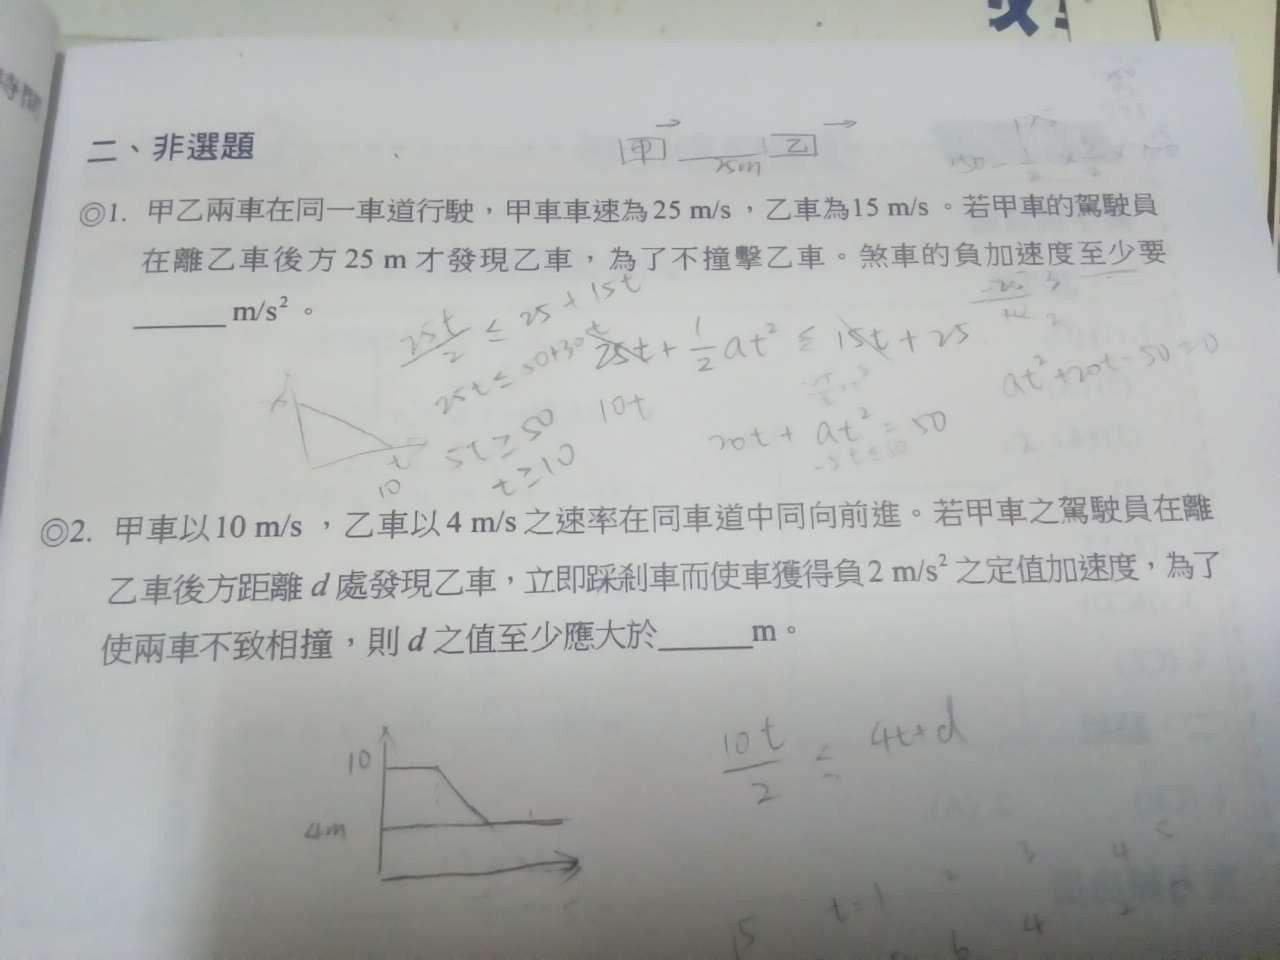 二、非選題
甲 乙
25m
◎1. 甲乙兩車在同一車道行駛，甲車車速為25 m/s，乙車為15 m/s。若甲車的駕駛員
在離乙車後方25 m才發現乙車，為了不撞擊乙車。煞車的負加速度至少要
______ m/s²。
25t/2 ≤ 25 + 15t
25t ≤ 50+30t
25t + 1/2 at² ≤ 15t + 25
at² + 20t - 50 = 0
10t
20t + at² = 50
-5t ≤ 50
5t ≥ 50
t ≥ 10
t
10
◎2. 甲車以10 m/s，乙車以4 m/s之速率在同車道中同向前進。若甲車之駕駛員在離
乙車後方距離 d 處發現乙車，立即踩剎車而使車獲得負2 m/s²之定值加速度，為了
使兩車不致相撞，則 d 之值至少應大於______m。
10t/2 ≤ 4t+d
10
4m
3 4 5
t=1
5
6 4 2